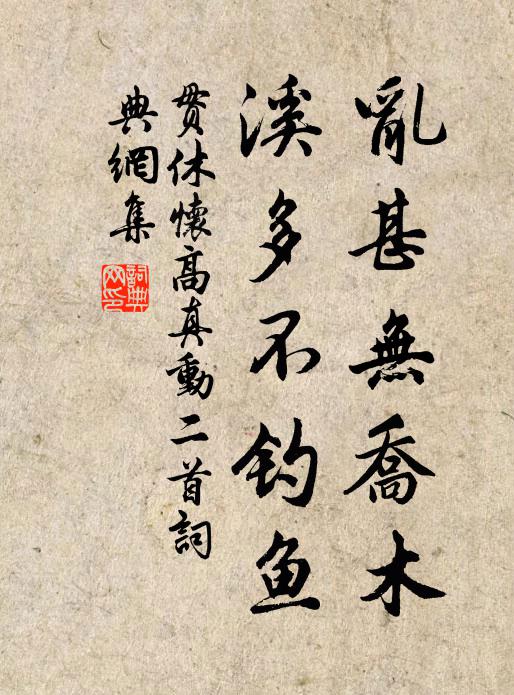 亂甚無喬木
溪多不钓鱼
贯休懷高真動二首詞
典網集
詞典网印